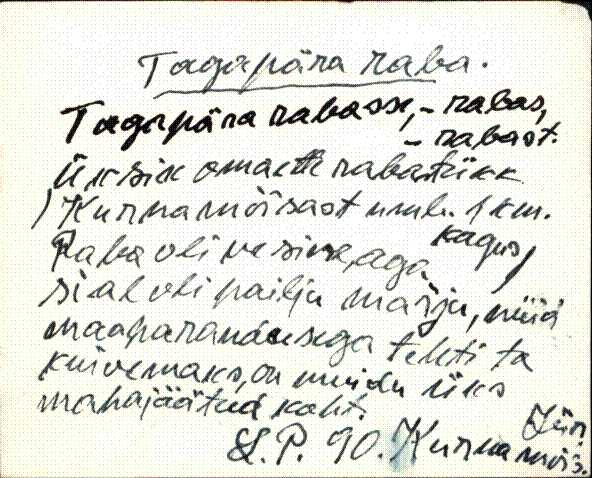 Tagapära raba.
Tagapära rabasse, - rabas,
- rabast.
Üksik omaette rabatükk
(Kurna mõisast umb. 1 km.
kagus)
Raba oli vesine, aga
sial oli pailju marju, nüid
maaparandusega tehti ta
kuivemaks, on muidu üks
mahajäätud koht.
L.P. 90. Kurna mõis.
Jür.